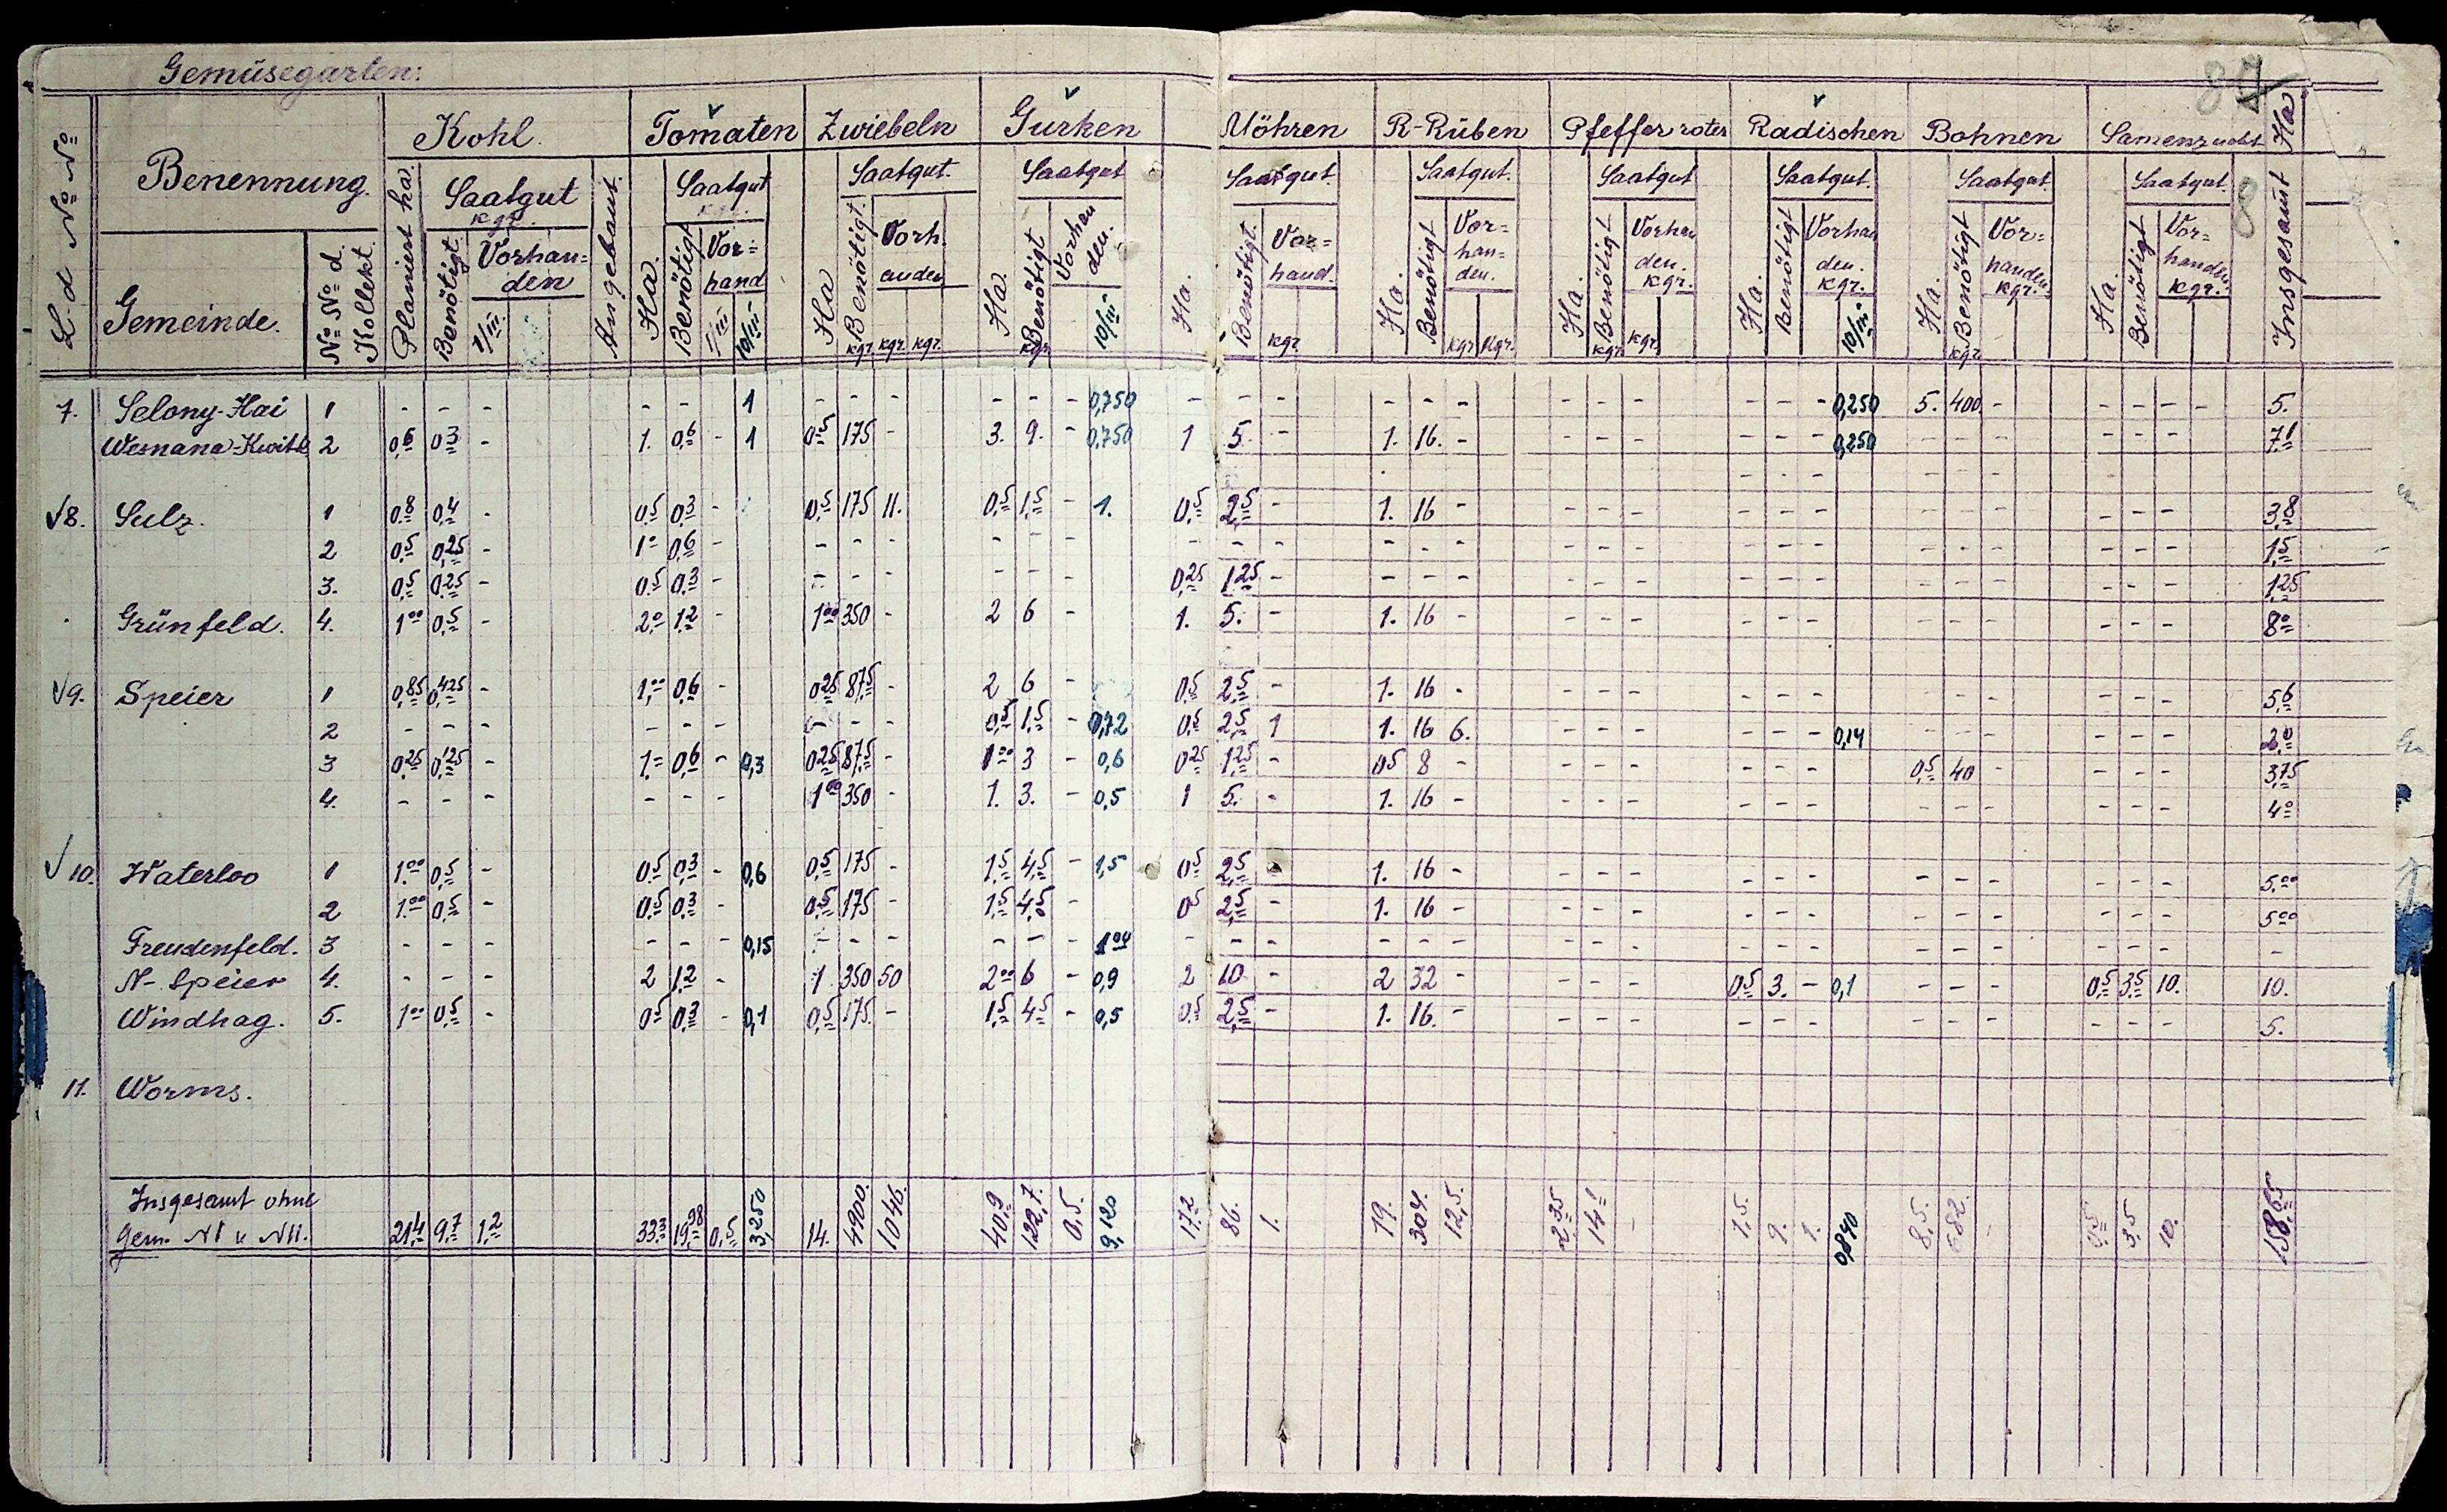 Gemüsegarten:
L-d No No Benennung. Kohl. Tomaten Zwiebeln Gurken Möhren R-Rüben Pfeffer roter Radischen Bohnen Samenzucht Insgesamt Ha
Gemeinde. No No d. Kollekt. Planiert ha. Saatgut kgr. Benötigt. Vorhanden 1/III. Angebaut. Ha. Saatgut kgr. Benötigt Vor=hand 1/III 10/III Ha Saatgut. Benötigt. kgr. Vorh.anden kgr. kgr. Ha. Saatgut Benötigt kgr. Vorhanden. 10/III Ha. Saatgut. Benötigt. Vor=hand. kgr. Ha. Saatgut. Benötigt Vor=han=den. kgr. kgr. Ha. Saatgut Benötigt kgr. Vorhanden. kgr. kgr. Ha. Saatgut. Benötigt Vorhanden. kgr. 10/III Ha. Saatgut. Benötigt kgr. Vor=handen kgr. Ha. Saatgut. Benötigt Vor=handen kgr.
7. Selony-Hai 1 - - - - - 1 - - - - - - 0,750 - - - - - - - - - - - - - 0,250 5. 400 - - - - - 5.
Wesnana-Kwitk 2 0,6 0,3 - 1. 0,6 - 1 0,5 175 - 3. 9. - 0,750 1 5. - 1. 16. - - - - - - - 0,250 - - - - - - 7,1
√8. Sulz. 1 0,8 0,4 - 0,5 0,3 - 0,5 175 11. 0,5 1,5 - 1. 0,5 2,5 - 1. 16 - - - - - - - - - - - - - 3,8
2 0,5 0,25 - 1,0 0,6 - - - - - - - - - - - - - - - - - - - - - - - - - 1,5
3. 0,5 0,25 - 0,5 0,3 - - - - - - - 0,25 1,25 - - - - - - - - - - - - - - - - 1,25
Grünfeld. 4. 1,00 0,5 - 2,0 1,2 - 1,00 350 - 2 6 - 1. 5. - 1. 16 - - - - - - - - - - - - - 8,0
√9. Speier 1 0,85 0,425 - 1,00 0,6 - 0,25 87,5 - 2 6 - 0,5 2,5 - 1. 16 - - - - - - - - - - - - - 5,6
2 - - - - - - - - - 0,5 1,5 - 0,72 0,5 2,5 1 1. 16 6. - - - - - - 0,14 - - - - - - 2,0
3 0,25 0,125 - 1,0 0,6 - 0,3 0,25 87,5 - 1,00 3 - 0,6 0,25 1,25 - 0,5 8 - - - - - - - 0,5 40 - - - - 3,75
4. - - - - - - 1,00 350 - 1. 3. - 0,5 1 5. - 1. 16 - - - - - - - - - - - - - 4,0
√10. Waterloo 1 1,00 0,5 - 0,5 0,3 - 0,6 0,5 175 - 1,5 4,5 - 1,5 0,5 2,5 - 1. 16 - - - - - - - - - - - - - 5,00
2 1,00 0,5 - 0,5 0,3 - 0,5 175 - 1,5 4,5 - 0,5 2,5 - 1. 16 - - - - - - - - - - - - - 5,00
Freudenfeld. 3 - - - - - - 0,15 - - - - - - 1,04 - - - - - - - - - - - - - - - - - - - -
N-Speier 4. - - - 2 1,2 - 1 350 50 2,00 6 - 0,9 2 10 - 2 32 - - - - 0,5 3. - 0,1 - - - 0,5 3,5 10. 10.
Windhag. 5. 1,00 0,5 - 0,5 0,3 - 0,1 0,5 175. - 1,5 4,5 - 0,5 0,5 2,5 - 1. 16. - - - - - - - - - - - - - 5.
11. Worms.
Insgesamt ohne
Gem. N1 u N11. 21,4 9,7 1,2 33,3 19,98 0,5 3,250 14. 4900. 1046. 40,9 122,7. 0,5. 9,120 17,2 86. 1. 19. 304. 12,5. 2,35 14,1 - 1,5. 9. 1. 0,840 8,5. 682. - 0,5 3,5 10. 158,65